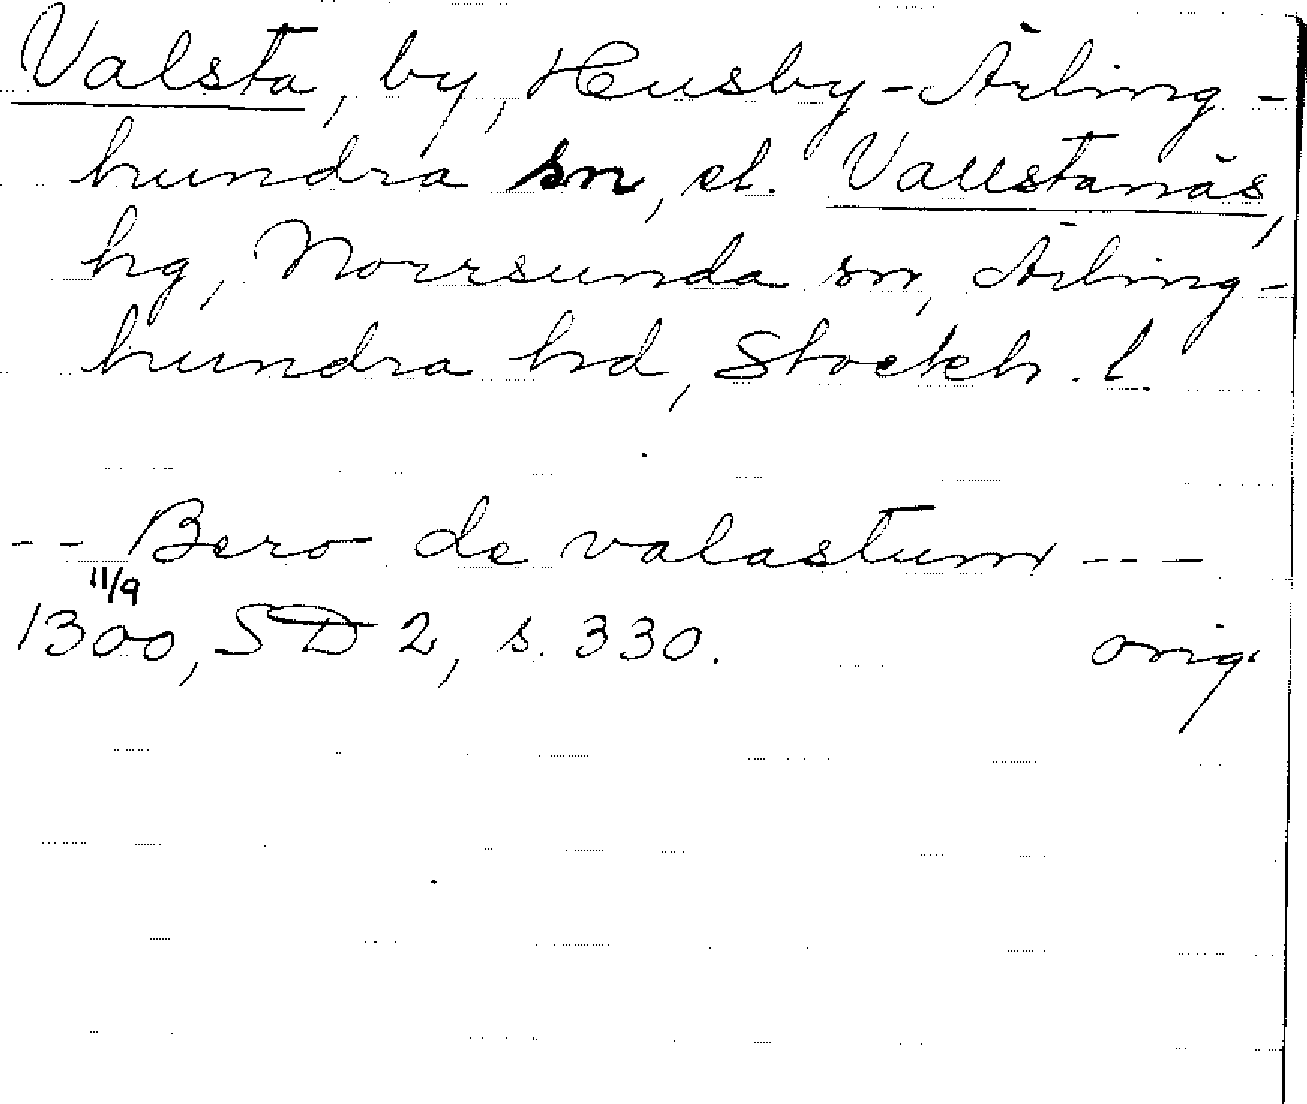 Valsta, by, Husby-Ärling-
hundra sn, el. Vallstanäs,
hg, Norrsunda sn, Ärling-
hundra hd, Stockh. l.
-- Bero de valastum ---
11/9
1300, SD 2, s. 330. orig.